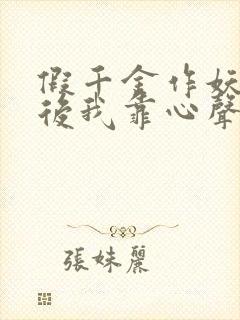 假千金作妖
後我靠心聲
張妹麗